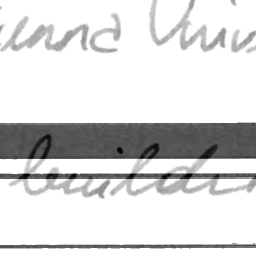 ienna Univ
buildin